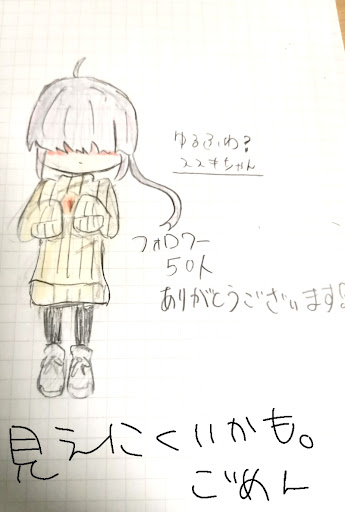 ゆるふわ?
ススキちゃん
フォロワー
50人
ありがとうございます!
見えにくいかも。
ごめん